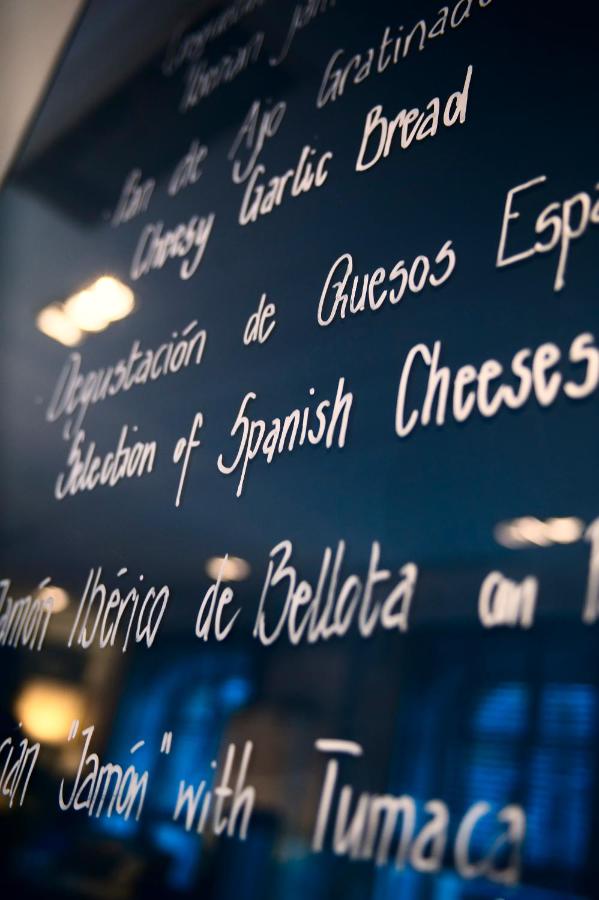 Iberian jam
Pan de Ajo Gratinado
Cheesy Garlic Bread
Degustación de Quesos Espa
Selection of Spanish Cheeses
Jamón Ibérico de Bellota con
"Jamón" with Tumaca